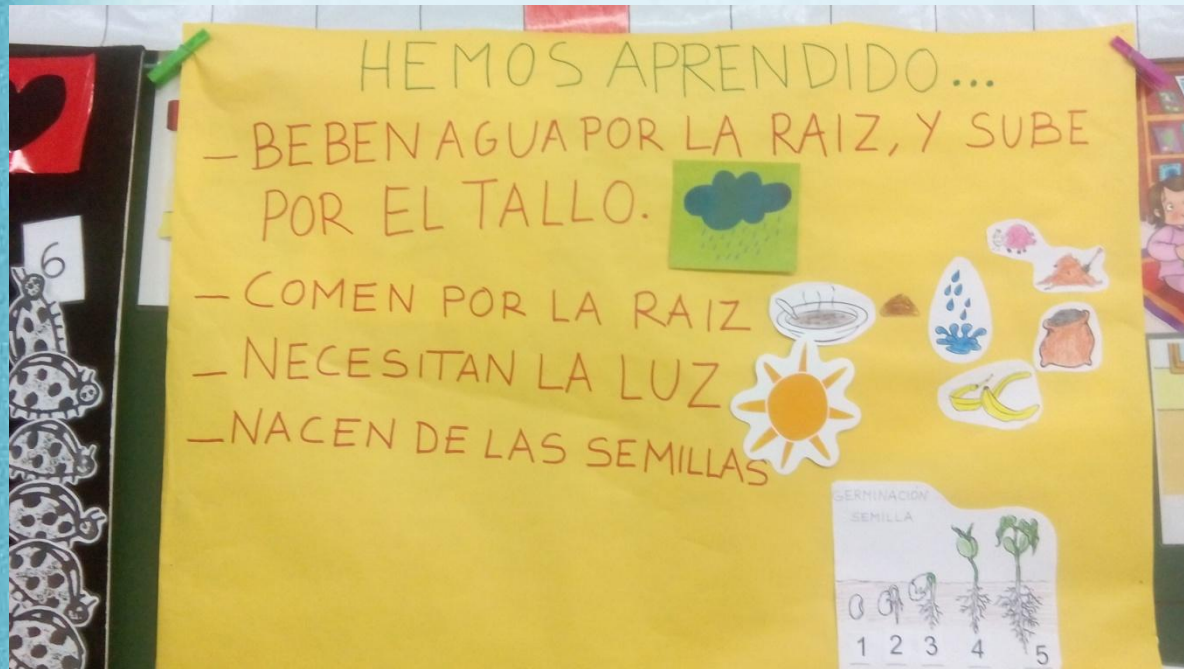 6
HEMOS APRENDIDO...
— BEBEN AGUA POR LA RAIZ, Y SUBE
POR EL TALLO.
— COMEN POR LA RAIZ
— NECESITAN LA LUZ
— NACEN DE LAS SEMILLAS
GERMINACIÓN
SEMILLA
1 2 3 4 5